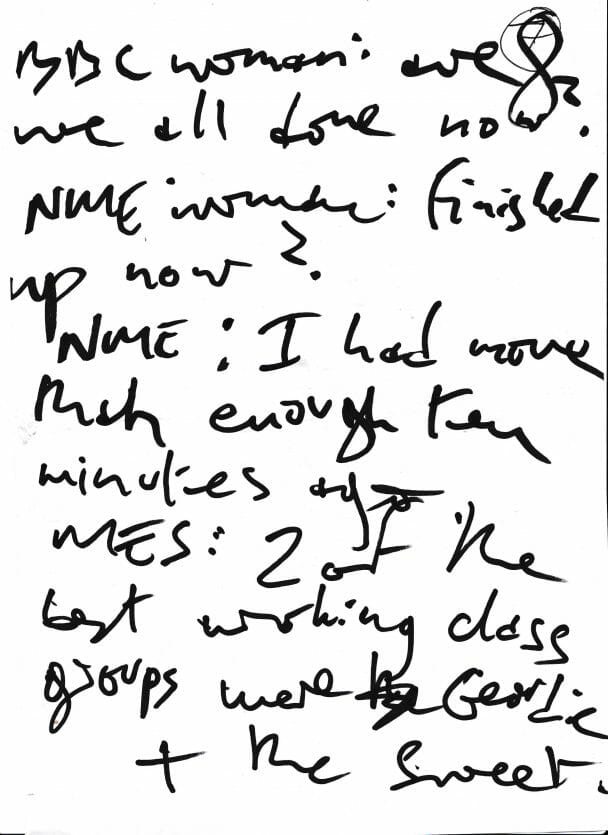 BBC woman: are 8
we all done now?.
NME woman: finished
up now?.
NME: I had more
than enough ten
minutes ago
MES: 2 of the
best working class
groups were Geordie
+ the Sweet.